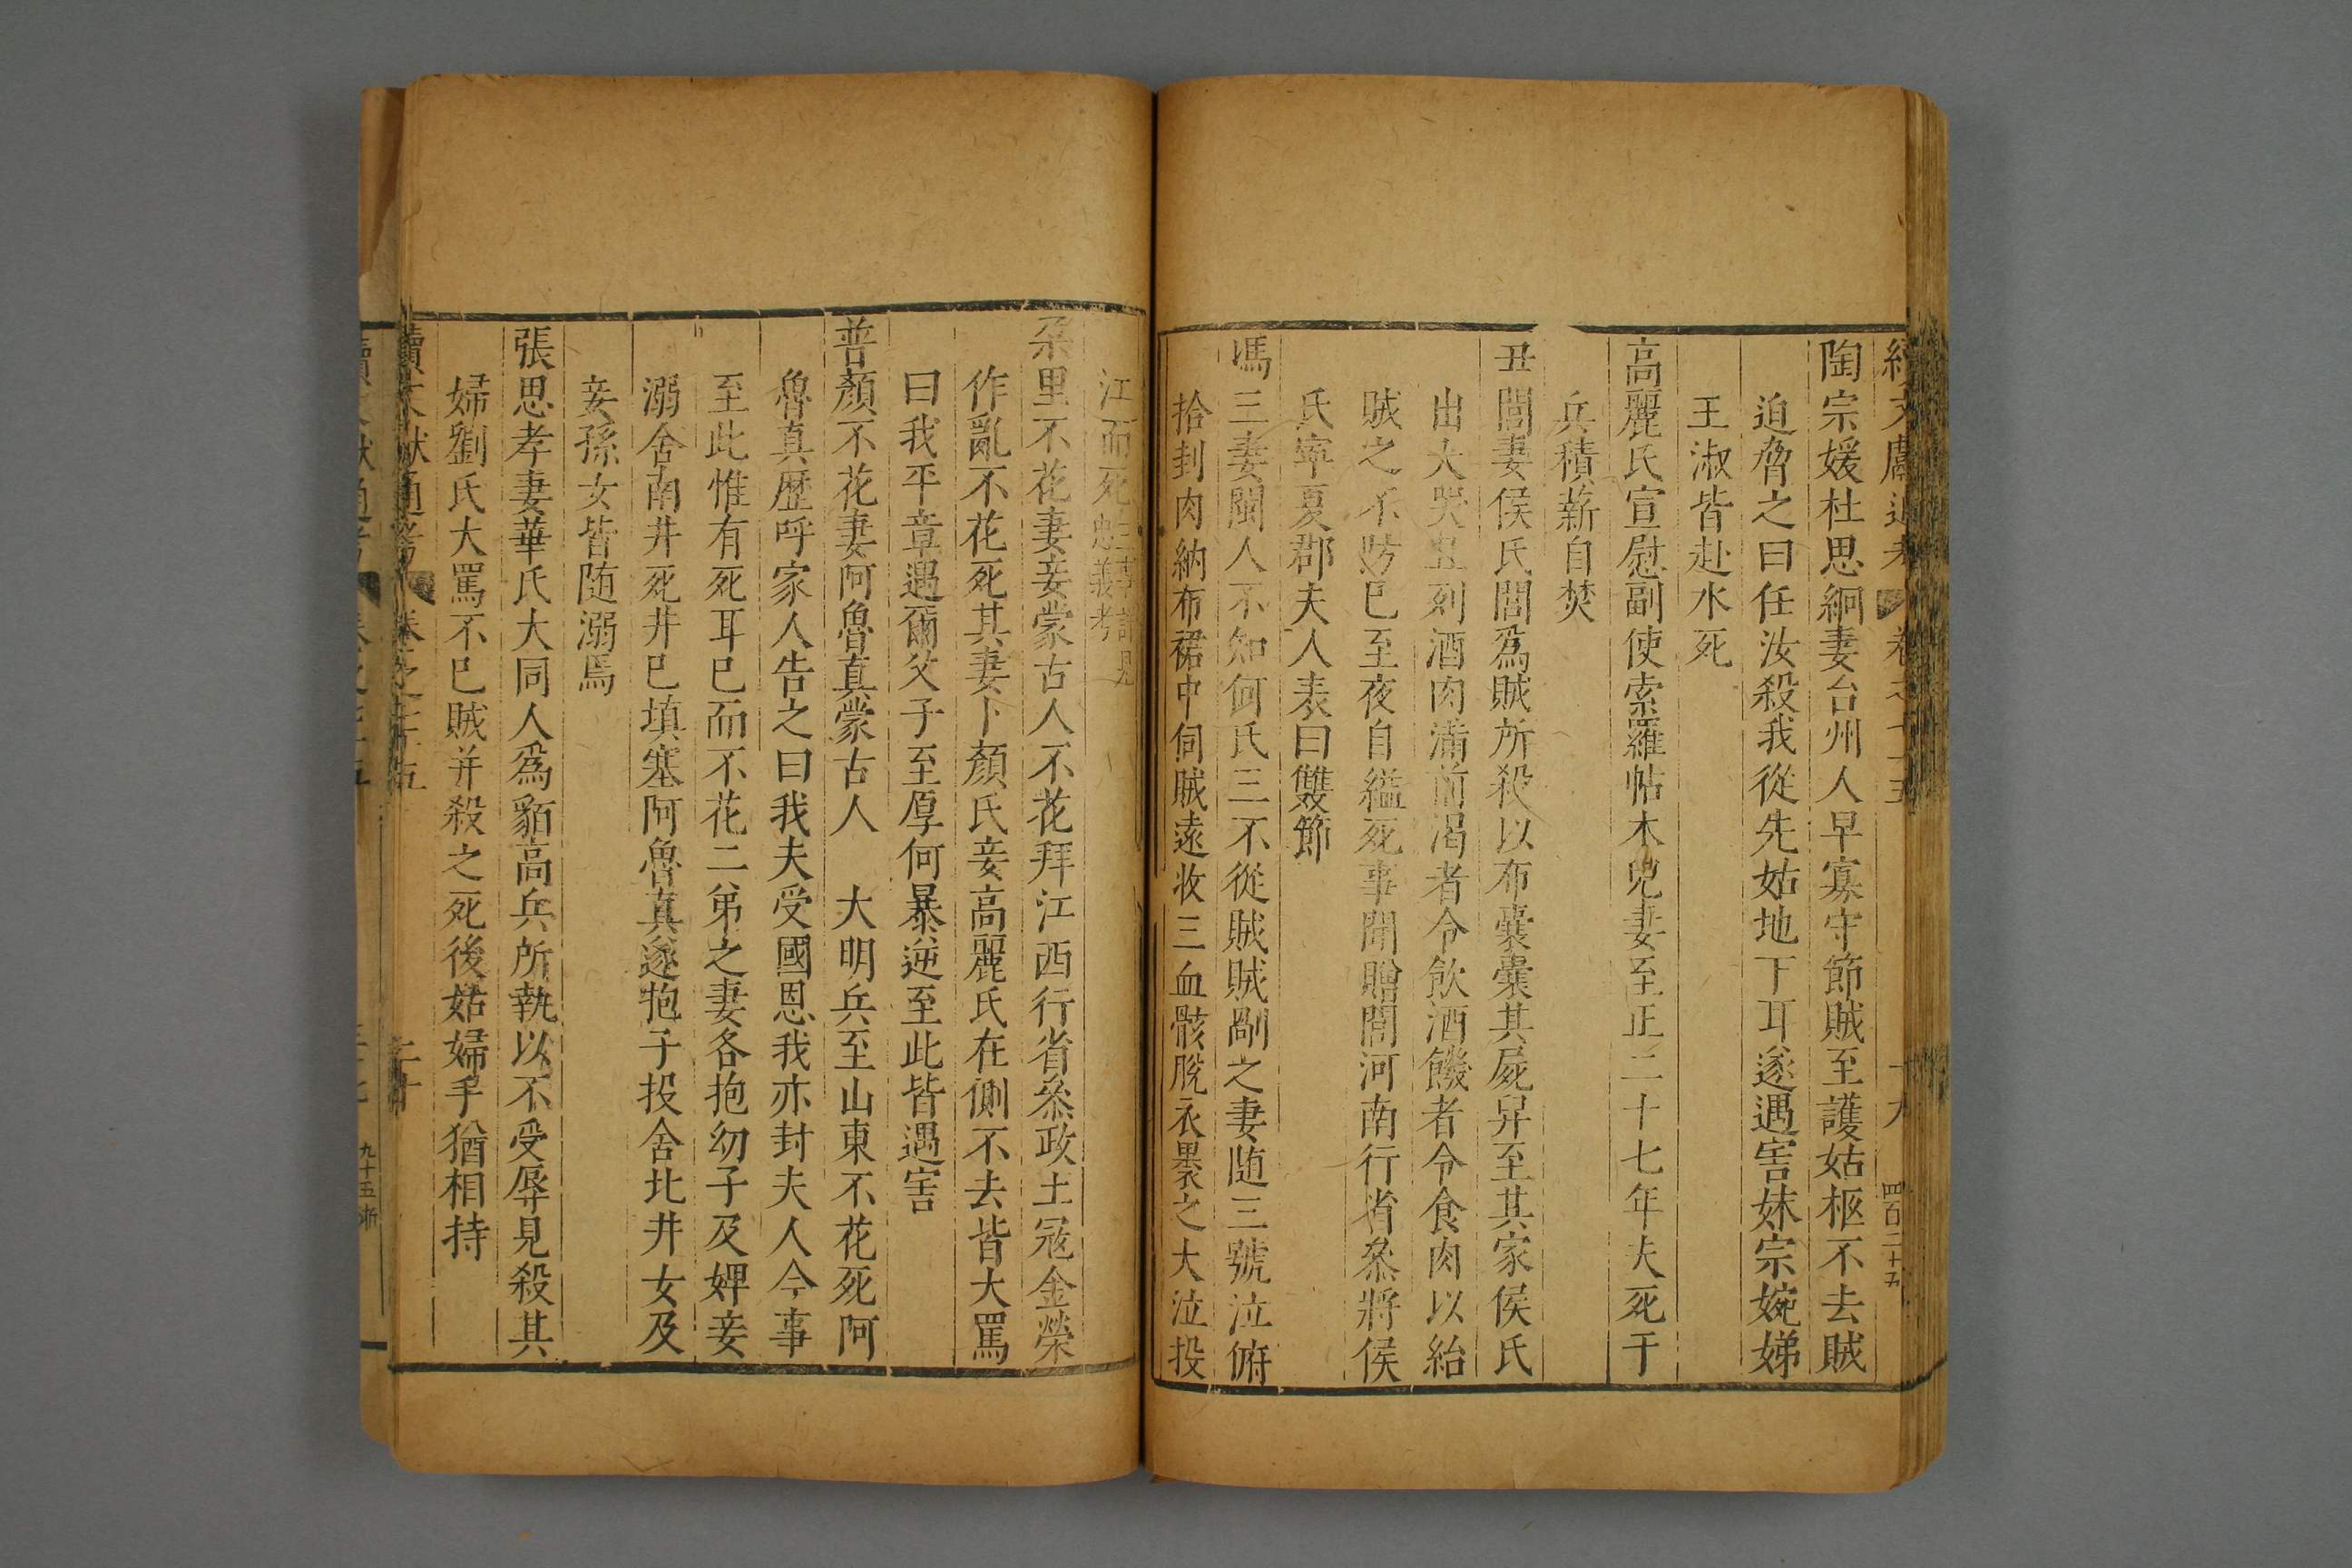 陶宗媛杜思絅妻台州人早寡守節賊至護姑柩不去賊
迫脅之曰任汝殺我從先姑地下耳遂遇害妹宗婉娣
王淑皆赴水死
高麗氏宣慰副使索羅帖木兒妻至正二十七年夫死于
兵積薪自焚
丑閭妻侯氏閭爲賊所殺以布囊囊其屍舁至其家侯氏
出大哭且列酒肉滿前渴者令飲酒饑者令食肉以紿
賊之不防巳至夜自縊死事聞贈閭河南行省叅將侯
氏寧夏郡夫人表曰雙節
馮三妻閩人不知何氏三不從賊賊剮之妻随三號泣俯
拾刲肉納布裙中伺賊遠收三血骸脫衣褁之大泣投
江而死 忠義考
朶里不花妻妾蒙古人不花拜江西行省叅政土冦金榮
作亂不花死其妻卜顏氏妾高麗氏在側不去皆大罵
曰我平章遇爾父子至厚何暴逆至此皆遇害
普顏不花妻阿魯真蒙古人 大明兵至山東不花死阿
魯真歷呼家人告之曰我夫受國恩我亦封夫人今事
至此惟有死耳巳而不花二弟之妻各抱幼子及婢妾
溺舍南井死井巳填塞阿魯真遂抱子投舍北井女及
妾孫女皆随溺焉
張思孝妻華氏大同人爲貊高兵所執以不受辱見殺其
婦劉氏大罵不巳賊并殺之死後姑婦手猶相持